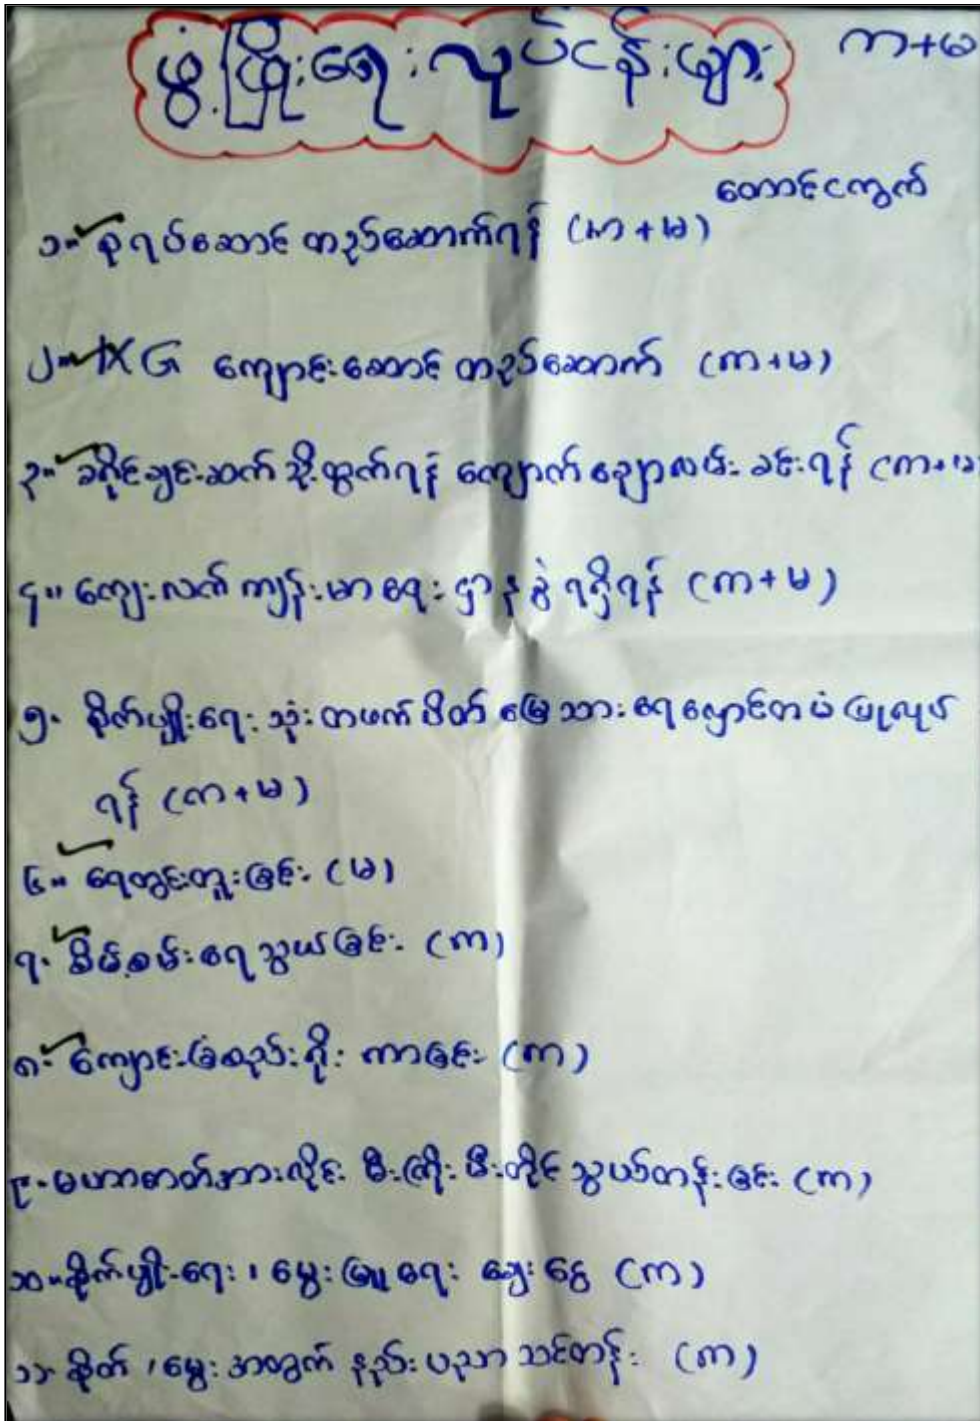 ဖွံ့ဖြိုးရေးလုပ်ငန်းများ က+မ
တောင်ငကွက်
၁။ စုရပ်ဆောင် တည်ဆောက်ရန် (က+မ)
၂။ RXG ကျောင်းဆောင် တည်ဆောက် (က+မ)
၃။ ခရိုင်ချင်းဆက် သို့ ထွက်ရန် ကျောက်ချောလမ်း ခင်းရန် (က+မ
၄။ ကျေးလက် ကျန်းမာရေး ဌာနခွဲ ရရှိရန် (က+မ)
၅။ စိုက်ပျိုးရေးသုံး တဖက်ပိတ် မြေသား ရေလှောင်တမံ ပြုလုပ်
ရန် (က+မ)
၆။ ရေတွင်းတူးခြင်း (မ)
၇။ စိမ့်စမ်းရေသွယ်ခြင်း (က)
၈။ ကျောင်းခြံစည်းရိုး ကာခြင်း (က)
၉။ မဟာဓာတ်အားလိုင်း မီးကြိုး မီးတိုင် သွယ်တန်းခြင်း (က)
၁၀။ စိုက်ပျိုးရေး၊ မွေးမြူရေး ချေးငွေ (က)
၁၁။ စိုက်၊ မွေး အတွက် နည်းပညာ သင်တန်း (က)